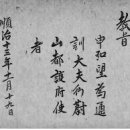 教旨
申和望為通
訓大夫行蔚
山都護府使
者
順治十三年十一月十九日